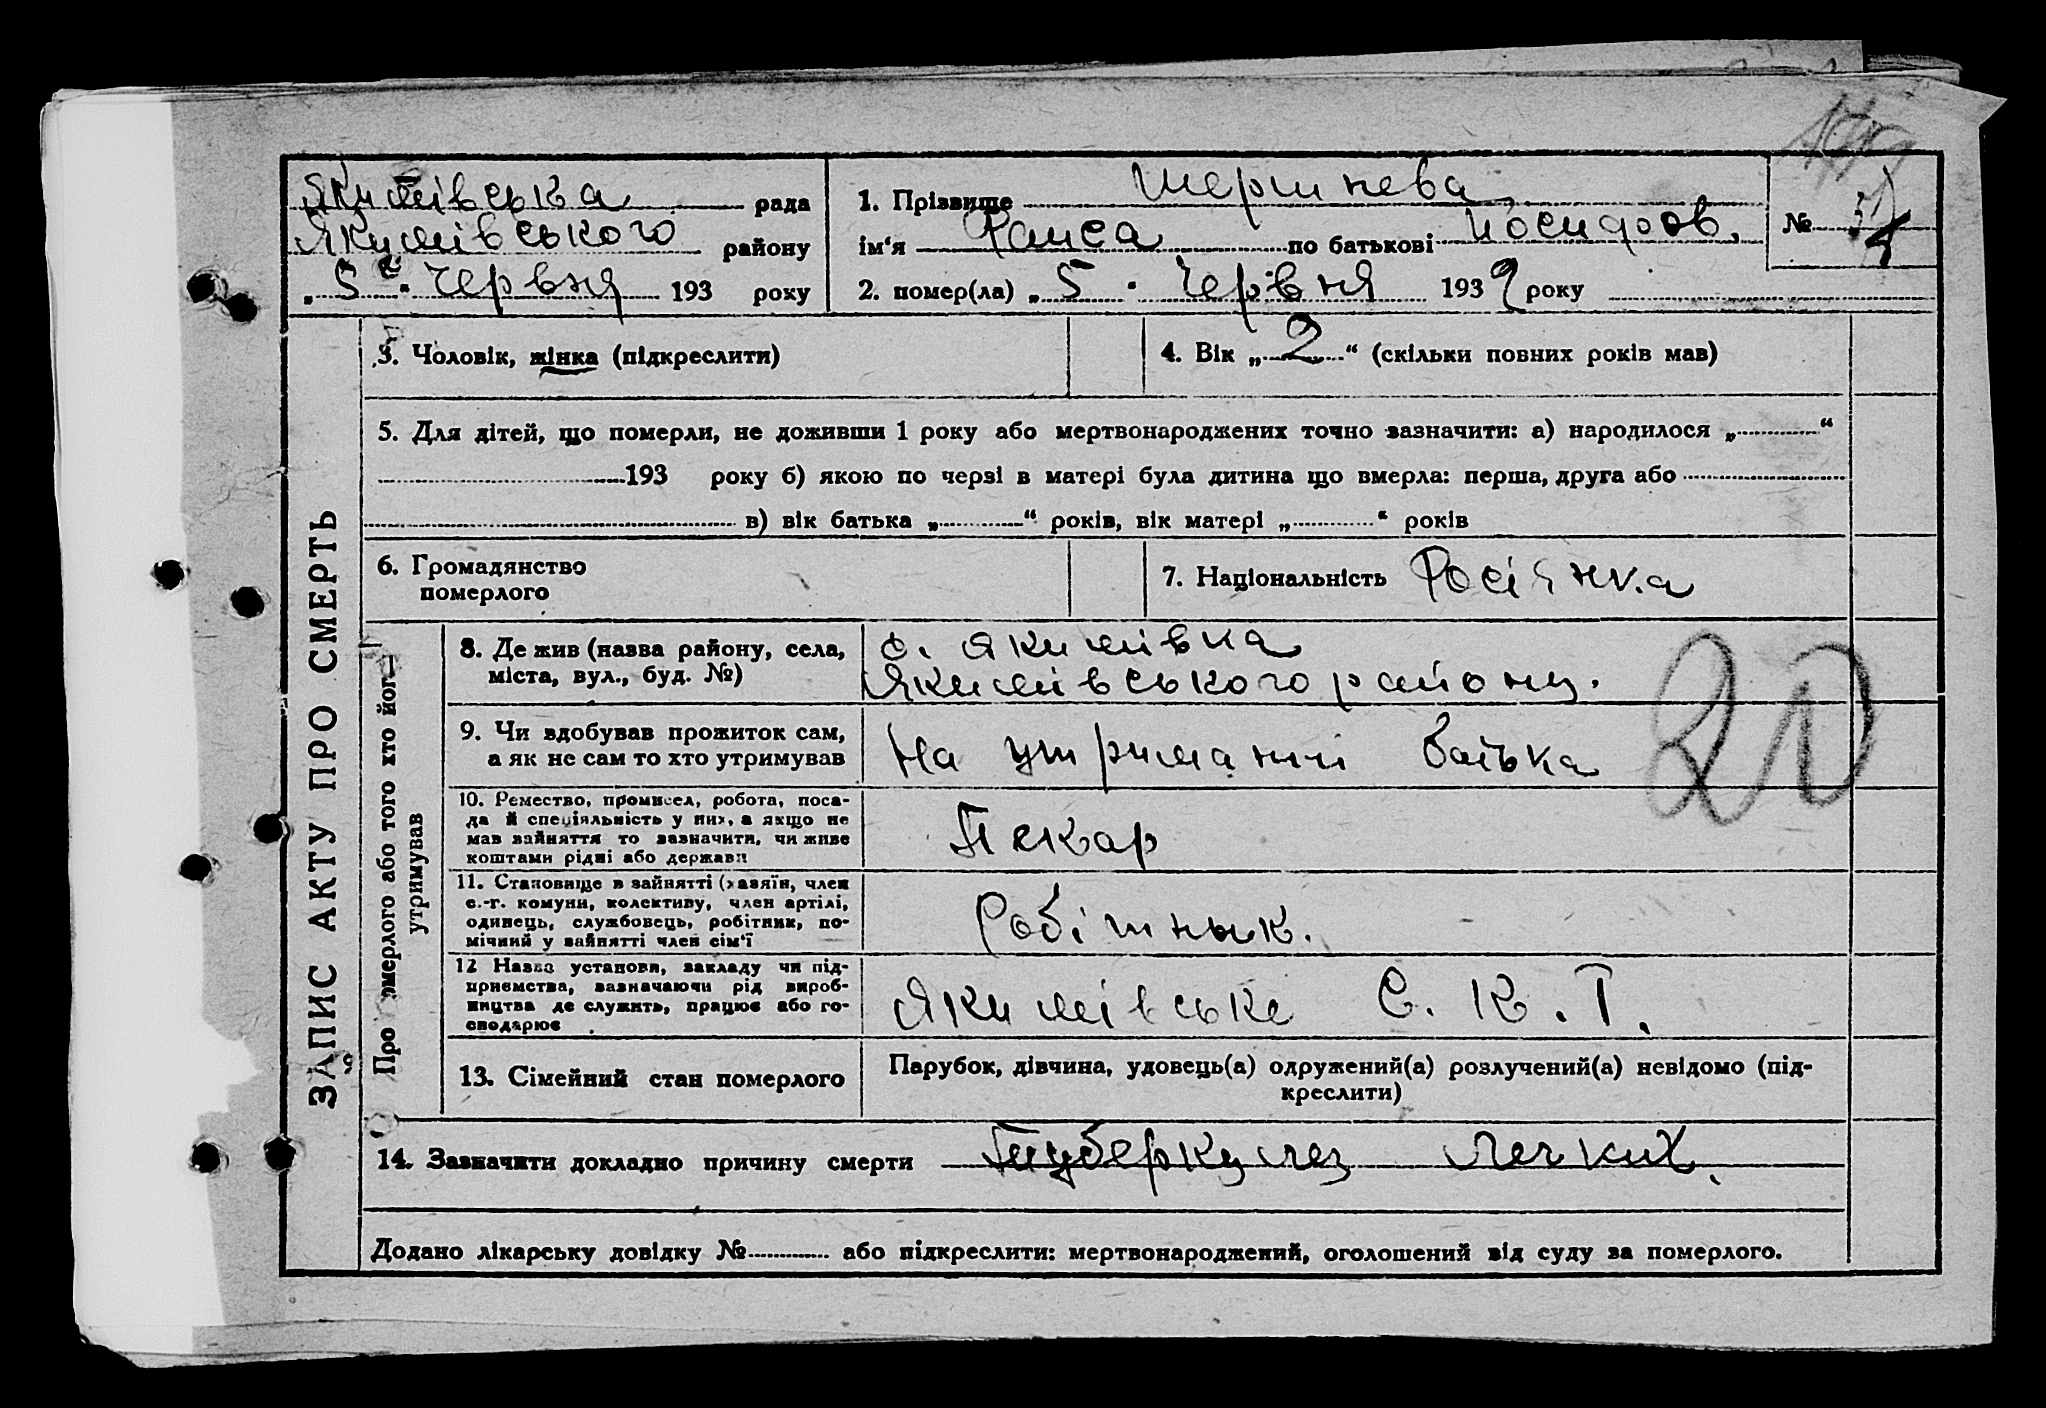 Якимівська рада
Якимівського району
„ 5 " червня 193 року
1. Прізвище
ім'я Раиса по батькові Иосифов.
№
2. помер(ла) „ 5 " червня 1932 року
ЗАПИС АКТУ ПРО СМЕРТЬ
3. Чоловік, жінка (підкреслити)
4. Вік „ 2 “ (скільки повних років мав)
5. Для дітей, що померли, не доживши 1 року або мертвонароджених точно зазначити: а) народилося „ “
193 року б) якою по черзі в матері була дитина що вмерла: перша, друга або
в) вік батька „ “ років, вік матері „ “ років
6. Громадянство
померлого
7. Національність Росіянка
Про померлого або того хто його
утримував
8. Де жив (назва району, села,
міста, вул., буд. №)
с. Якимівка
Якимівського району.
9. Чи здобував прожиток сам,
а як не сам то хто утримував
На утриманні батька
10. Ремество, промисел, робота, поса-
да й спеціяльність у них, а якщо не
мав зайняття то зазначити, чи живе
коштами рідні або держави
Пекар
11. Становище в зайнятті (хазяїн, член
с.-г. комуни, колективу, член артілі,
одинець, службовець, робітник, по-
мічний у зайнятті член сім'ї
Робітнык.
12 Назва установи, закладу чи під-
приємства, зазначаючи рід вироб-
ництва де служить, працює або го-
сподарює
Якимівське С. К. Т.
20
13. Сімейний стан померлого
Парубок, дівчина, удовець(а) одружений(а) розлучений(а) невідомо (під-
креслити)
14. Зазначити докладно причину смерти Туберкулез легких.
Додано лікарську довідку № або підкреслити: мертвонароджений, оголошений від суду за померлого.